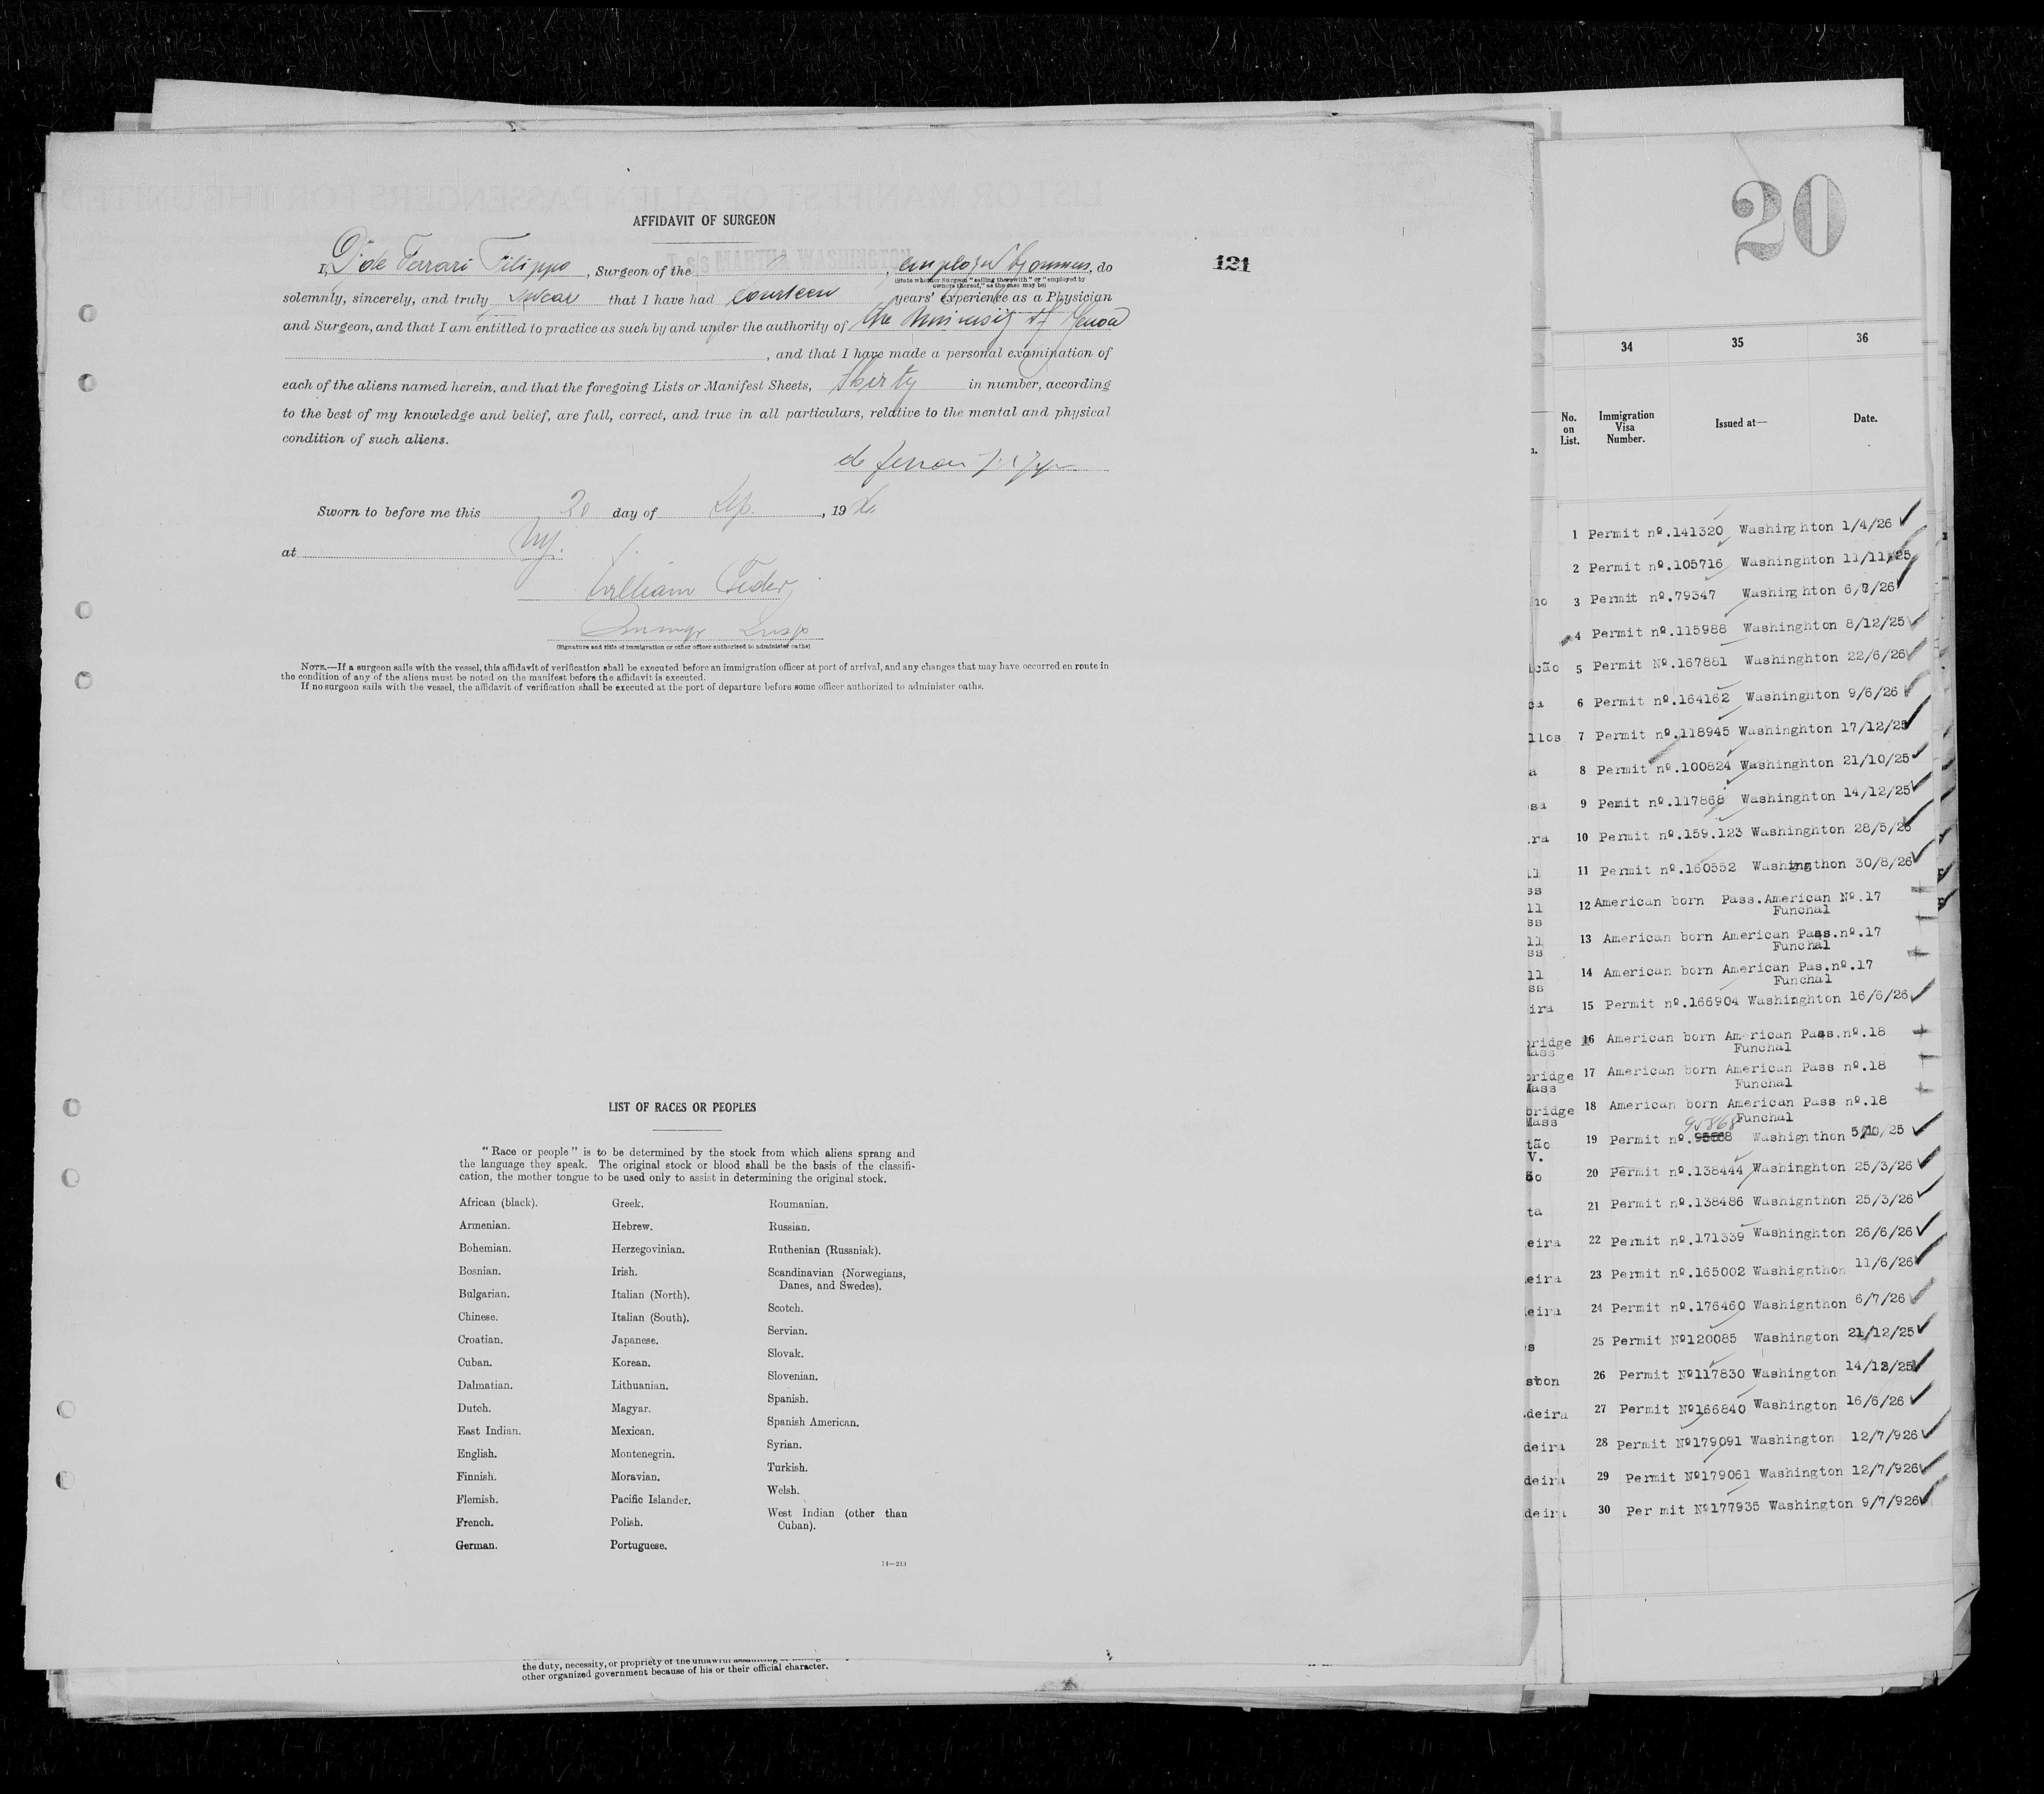 AFFIDAVIT OF SURGEON
I, Dr de Ferrari Filippo, Surgeon of the T. s/s MARTHA WASHINGTON, employed by owners, do
(State whether Surgeon "sailing therewith" or "employed by
owners thereof," as the case may be)
solemnly, sincerely, and truly swear that I have had fourteen years' experience as a Physician
and Surgeon, and that I am entitled to practice as such by and under the authority of the University of Genoa
, and that I have made a personal examination of
each of the aliens named herein, and that the foregoing Lists or Manifest Sheets, thirty in number, according
to the best of my knowledge and belief, are full, correct, and true in all particulars, relative to the mental and physical
condition of such aliens.
de Ferrari
Sworn to before me this 20 day of Sep., 19
at NY.
William Feder,
Insp
(Signature and title of immigration or other officer authorized to administer oaths)
NOTE.—If a surgeon sails with the vessel, this affidavit of verification shall be executed before an immigration officer at port of arrival, and any changes that may have occurred en route in
the condition of any of the aliens must be noted on the manifest before the affidavit is executed.
If no surgeon sails with the vessel, the affidavit of verification shall be executed at the port of departure before some officer authorized to administer oaths.
121
LIST OF RACES OR PEOPLES
"Race or people" is to be determined by the stock from which aliens sprang and
the language they speak. The original stock or blood shall be the basis of the classifi-
cation, the mother tongue to be used only to assist in determining the original stock.
African (black).
Armenian.
Bohemian.
Bosnian.
Bulgarian.
Chinese.
Croatian.
Cuban.
Dalmatian.
Dutch.
East Indian.
English.
Finnish.
Flemish.
French.
German.
Greek.
Hebrew.
Herzegovinian.
Irish.
Italian (North).
Italian (South).
Japanese.
Korean.
Lithuanian.
Magyar.
Mexican.
Montenegrin.
Moravian.
Pacific Islander.
Polish.
Portuguese.
Roumanian.
Russian.
Ruthenian (Russniak).
Scandinavian (Norwegians,
Danes, and Swedes).
Scotch.
Servian.
Slovak.
Slovenian.
Spanish.
Spanish American.
Syrian.
Turkish.
Welsh.
West Indian (other than
Cuban).
14—213
the duty, necessity, or propriety of the unlawful assaulting
other organized government because of his or their official character.
20
34 35 36
No. on List. Immigration Visa Number. Issued at— Date.
1 Permit nº.141320 Washinghton 1/4/26
2 Permit nº.105716 Washinghton 11/11/25
no 3 Permit nº.79347 Washinghton 6/7/26
4 Permit nº.115988 Washinghton 8/12/25
ção 5 Permit Nº.167881 Washinghton 22/6/26
ca 6 Permit nº.164162 Washinghton 9/6/26
llos 7 Permit nº.118945 Washinghton 17/12/25
a 8 Permit nº.100824 Washinghton 21/10/25
sa 9 Pemit nº.117868 Washinghton 14/12/25
ra 10 Permit nº.159.123 Washinghton 28/5/26
ll 11 Permit nº.160552 Washingthon 30/8/26
ss
ll 12 American born Pass.American Nº.17
ss Funchal
ll 13 American born American Pass.nº.17
ss Funchal
ll 14 American born American Pas.nº.17
ss Funchal
ira 15 Permit nº.166904 Washinghton 16/6/26
bridge 16 American born American Pass.nº.18
Mass Funchal
bridge 17 American born American Pass nº.18
Mass Funchal
bridge 18 American born American Pass nº.18
Mass Funchal
95868
tão 19 Permit nº. Washignthon 5/10/25
V.
ão 20 Permit nº.138444 Washinghton 25/3/26
ta 21 Permit nº.138486 Washignthon 25/3/26
eira 22 Permit nº.171339 Washinghton 26/6/26
eira 23 Permit nº.165002 Washignthon 11/6/26
eira 24 Permit nº.176460 Washignthon 6/7/26
s 25 Permit Nº120085 Washington 21/12/25
sbon 26 Permit Nº117830 Washington 14/12/25
deira 27 Permit Nº166840 Washington 16/6/26
deira 28 Permit Nº179091 Washington 12/7/926
deira 29 Permit Nº179061 Washington 12/7/926
deira 30 Per mit Nº177935 Washington 9/7/926